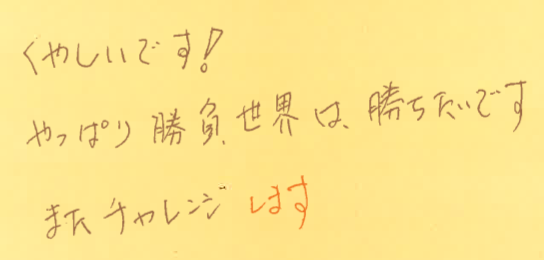 くやしいです!
やっぱり勝負世界は、勝ちたいです
またチャレンジします